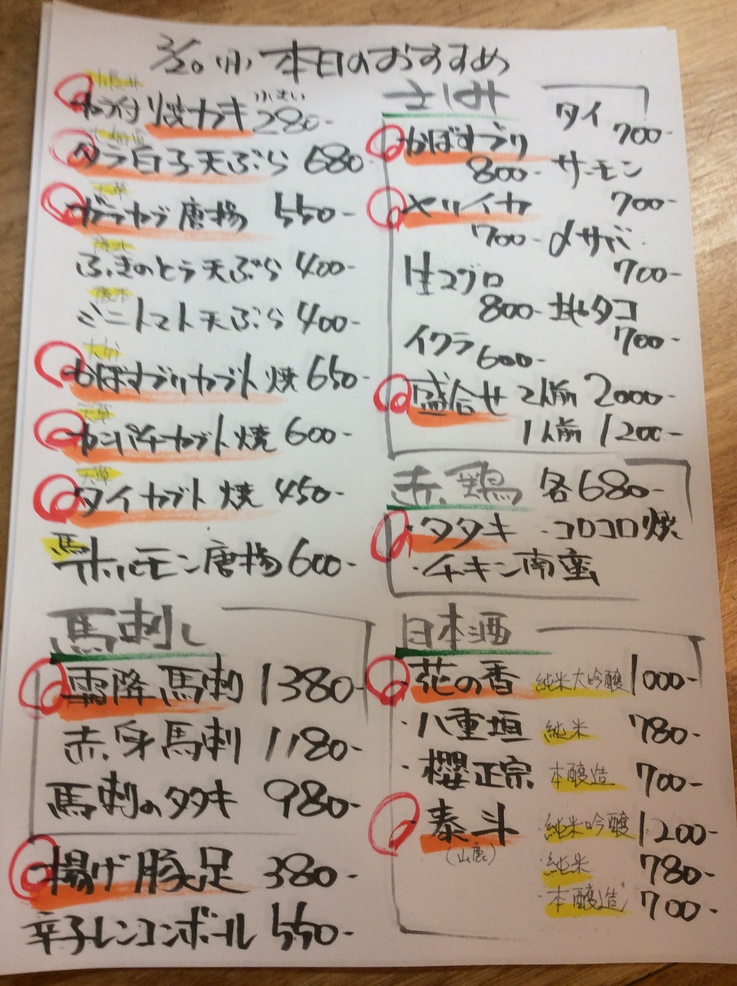 2/20(月)本日のおすすめ
小さい
カラ付焼カキ 280-
タラ白子天ぷら 680
天草
ガラカブ唐揚 550-
ふきのとう天ぷら 400-
ミニトマト天ぷら 400-
大分
かぼすブリカブト焼 650-
天草
カンパチカブト焼 600-
天草
タイカブト焼 450-
馬ホルモン唐揚 600-
馬刺し
霜降馬刺 1380-
赤身馬刺 1180-
馬刺のタタキ 980-
揚げ豚足 380-
辛子レンコンボール 550-
さしみ
かぼすブリ 800-
ヤリイカ 700-
生マグロ 800-
イクラ 600-
タイ 700-
サーモン 700-
〆サバ 700-
地タコ 700-
盛合せ 2人前 2000-
1人前 1200-
赤鶏 各680-
・タタキ ・コロコロ焼
・チキン南蛮
日本酒
・花の香 純米大吟醸 1000-
・八重垣 純米 780-
・櫻正宗 本醸造 700-
・泰斗 純米吟醸 1200-
(山鹿) 純米 780-
本醸造 700-